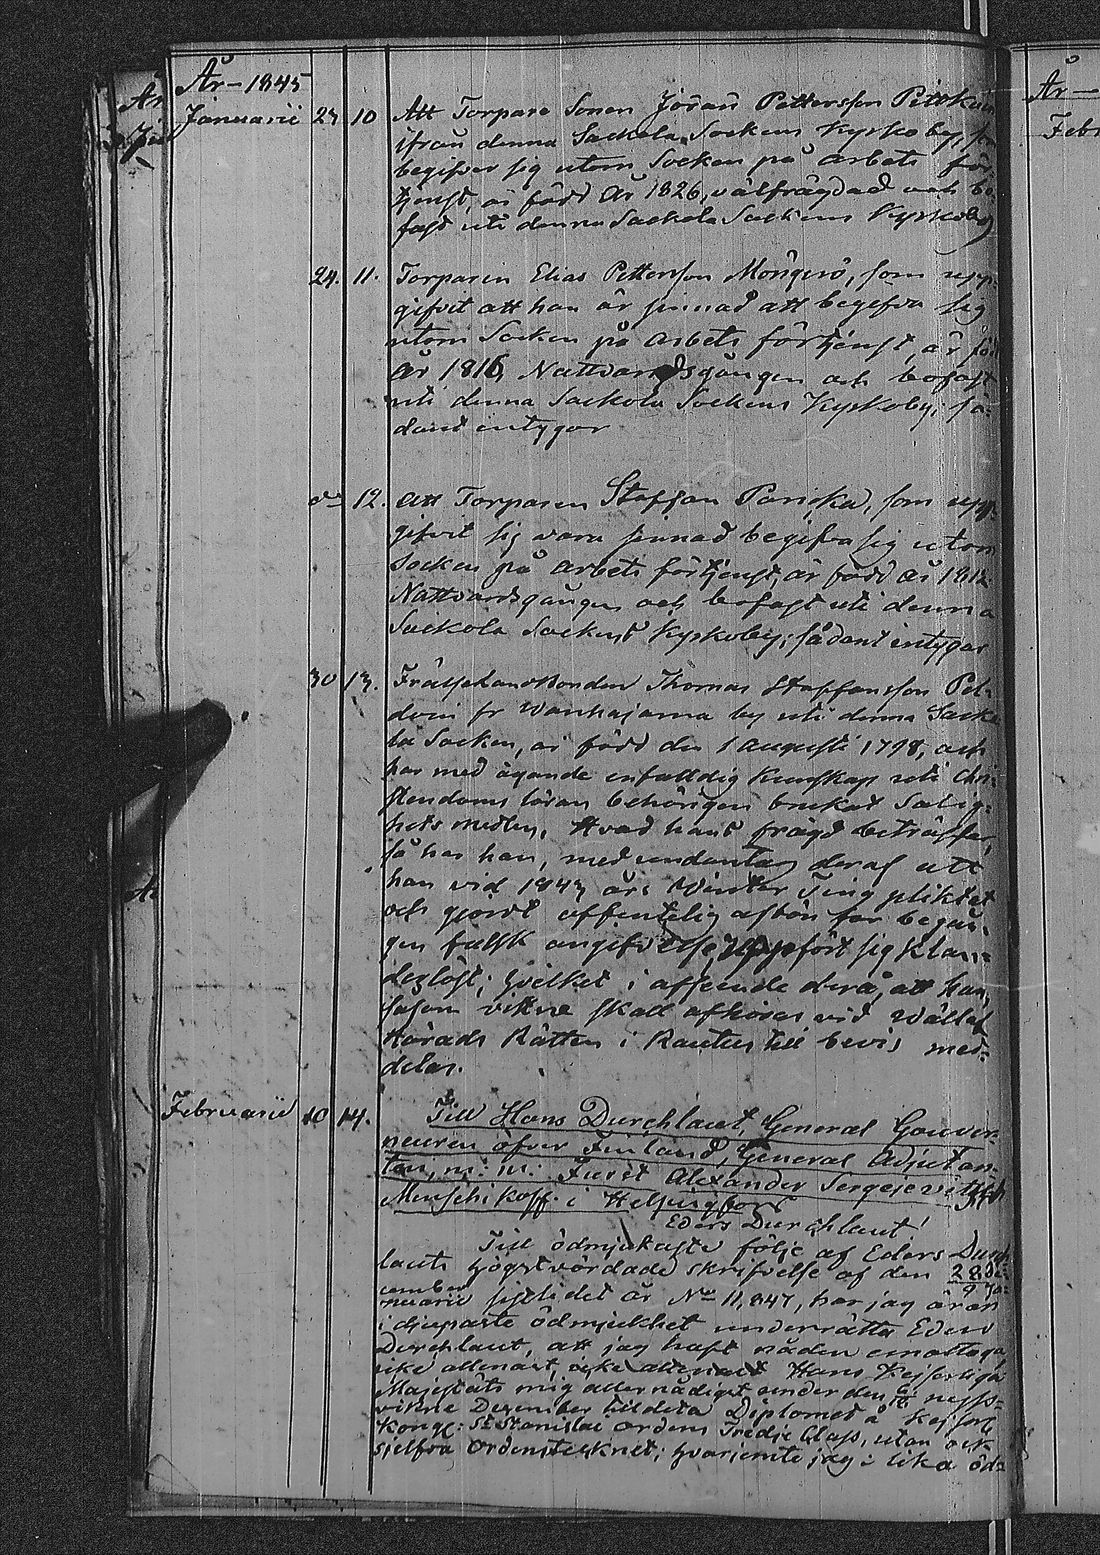 År – 1845
Januarii 23 10 Att Torpare Sonen Jöran Pettersson Pitkän
ifrån denna Sackola Sockens Kyrkoby,
begifver sig utom Socken på arbets för-
tjenst, är född År 1826, välfrägdad och bo-
fast uti denna Sackola Sockens Kyrkoby
24. 11. Torparen Elias Pettersson Mönqerö, som upp-
gifvit att han är sinnad att begifva sig
utom Socken på arbets förtjenst, är född
År 1816, Nattvardsgången och bofast
uti denna Sackola Sockens Kyrkoby; så-
dant intygar
do 12. Att Torparen Staffan Parikka, som upp-
gifvit sig vara sinnad begifva sig utom
Socken på arbets förtjenst, är född År 1812
Nattvardsgången och bofast uti denna
Sackola Sockens Kyrkoby; sådant intygar
30 13. FrälseLandbonden Thomas Staffansson Pel-
fr Wanhajama by uti denna Sacko-
la Socken, är född den 1 Augusti 1798, och
har med ägande enfalldig Kunskap uti Chri-
stendoms läran behörigen brukat Salig-
hets medlen. Hvad hans frägd beträffar,
så har han, med undantag deraf att
han vid 1843 års Winter Ting pliktat
och gjordt offentelig afbön för begån-
gen falsk angifvelse, uppfört sig klan-
derlöst; hvilket i afseende derå, att han,
såsom vittne skall afhöras vid Wällof
Härads Rätten i Rautus till bevis med-
delas.
Februarii 10 14. Till Hans Durchlaut, General Gouver-
neuren öfver Finland, General Adjutan-
ten, m: m: Furst Alexander Sergejevitsch
Menschikoff i Helsingfors
Eders Durchlaut!
Till ödmjukaste följe af Eders Durch-
lauts högstvördade skrifvelse af den 28 De-
cember 9 Ja-
nuarii sistledet år No 11,847, har jag äran
i djupaste ödmjukhet underrätta Eders
Durchlaut, att jag haft nåden emottaga
icke allenast Hans Kejserliga
Majestäts mig allernådigst under den nyss-
vikne December tilldelta Diplomet å Kejserl
Kongl: St Stanislai Ordens Tredje Class, utan ock
sjelfva Ordenstecknet; hvarjemte jag i lika öd-